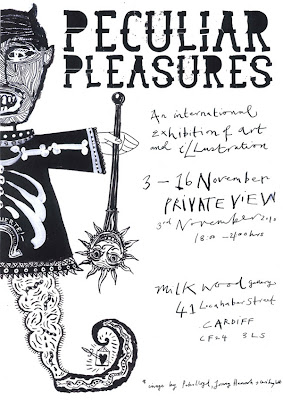 PECULIAR
PLEASURES
An international
exhibition of art
and illustration
3 - 16 November
PRIVATE VIEW
3rd November 2010
18:00 -
MILKWOOD gallery
41 Lochaber Street
CARDIFF
CF24 3LS
image by Peter Lloyd, Jonny Hannah